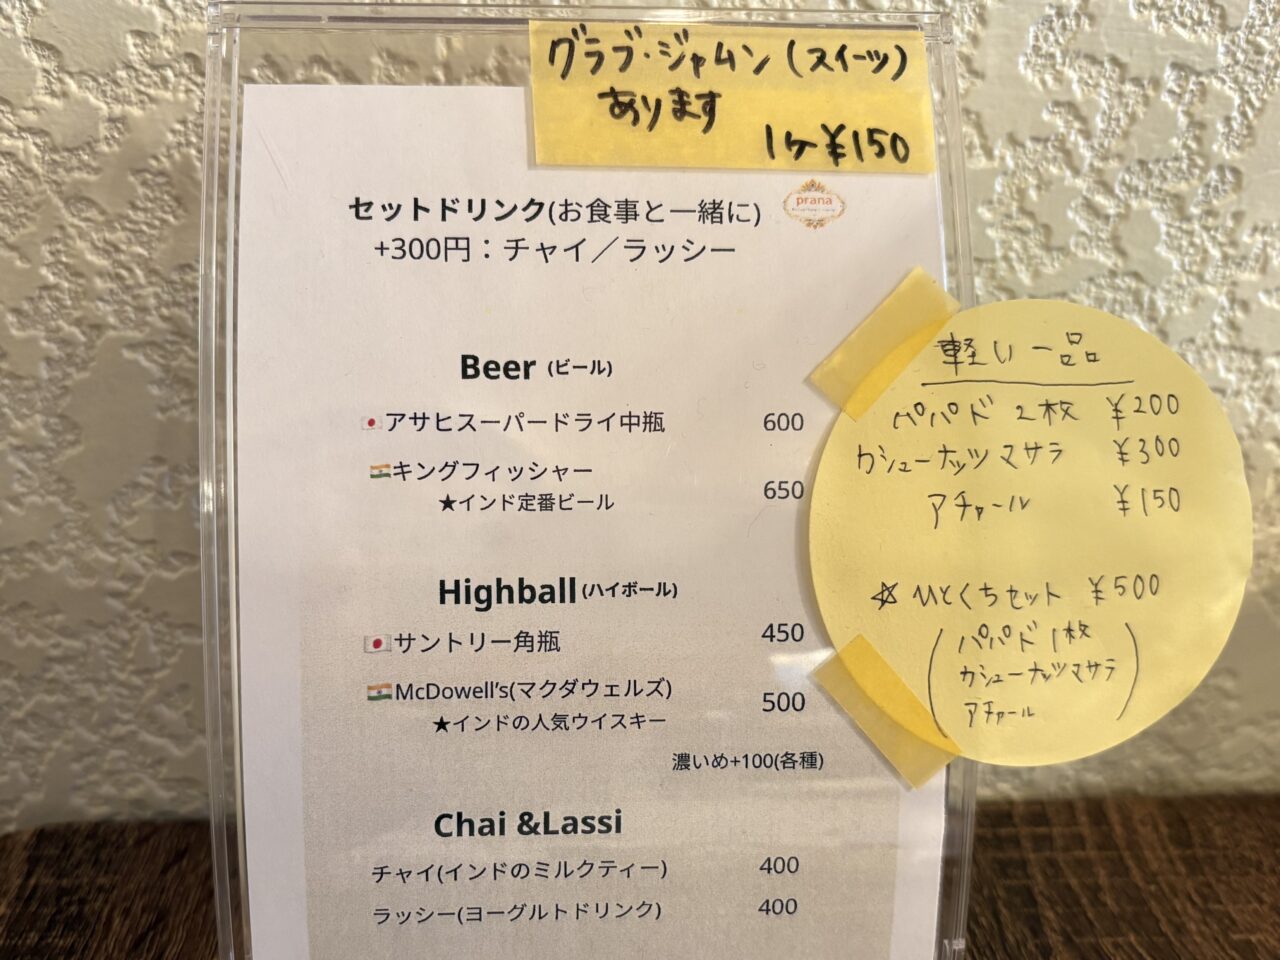 グラブ・ジャムン(スイーツ)
あります
1ヶ¥150
prana
セットドリンク(お食事と一緒に)
+300円：チャイ／ラッシー
Beer (ビール)
アサヒスーパードライ中瓶 600
キングフィッシャー 650
★インド定番ビール
Highball(ハイボール)
サントリー角瓶 450
McDowell’s(マクダウェルズ) 500
★インドの人気ウイスキー
濃いめ+100(各種)
Chai &Lassi
チャイ(インドのミルクティー) 400
ラッシー(ヨーグルトドリンク) 400
軽い一品
パパド 2枚 ¥200
カシューナッツマサラ ¥300
アチャール ¥150
☆ひとくちセット ¥500
(パパド1枚
カシューナッツマサラ
アチャール)